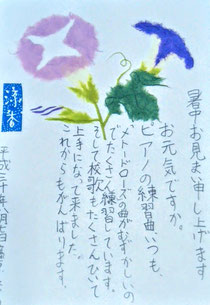 暑中お見まい申し上げます
お元気ですか。
ピアノの練習曲、いつも、
メトードローズの曲がむずかしいの
でたくさん練習しています。
そして校歌もたくさんひいて
上手になって来ました。
これからもがんばります。
平成三十年
涼香